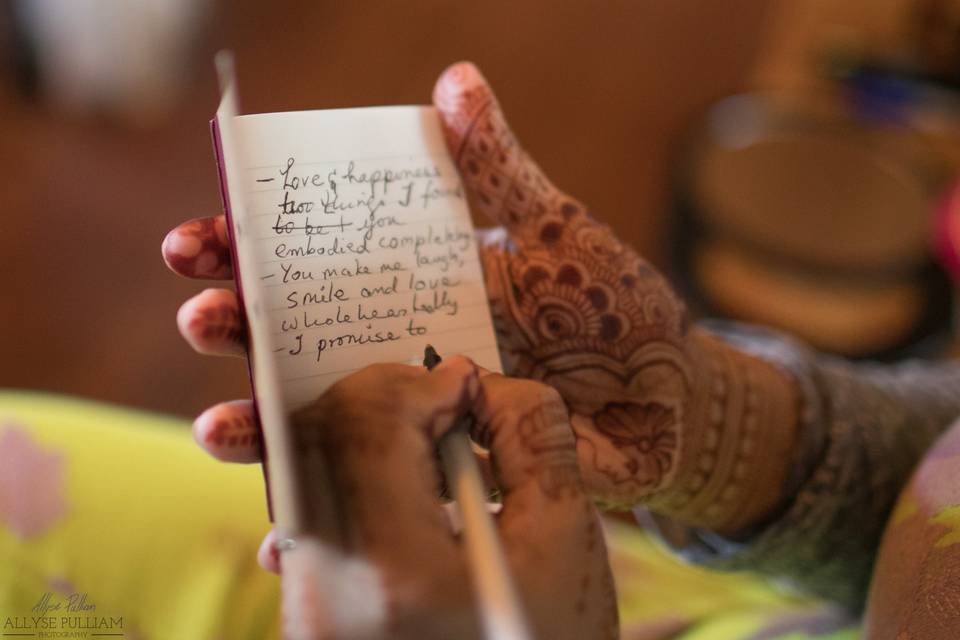 - Love & happiness
two things I found
to be t you
embodied completely
- You make me laugh,
smile and love
wholeheartedly
- I promise to
Allyse Pulliam
ALLYSE PULLIAM
PHOTOGRAPHY